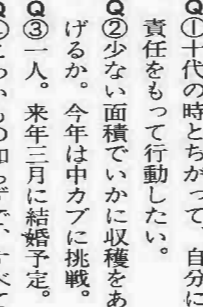 Q①十代の時とちがって、自分に
責任をもって行動したい。
Q②少ない面積でいかに収穫をあ
げるか。今年は中カブに挑戦。
Q③一人。来年三月に結婚予定。